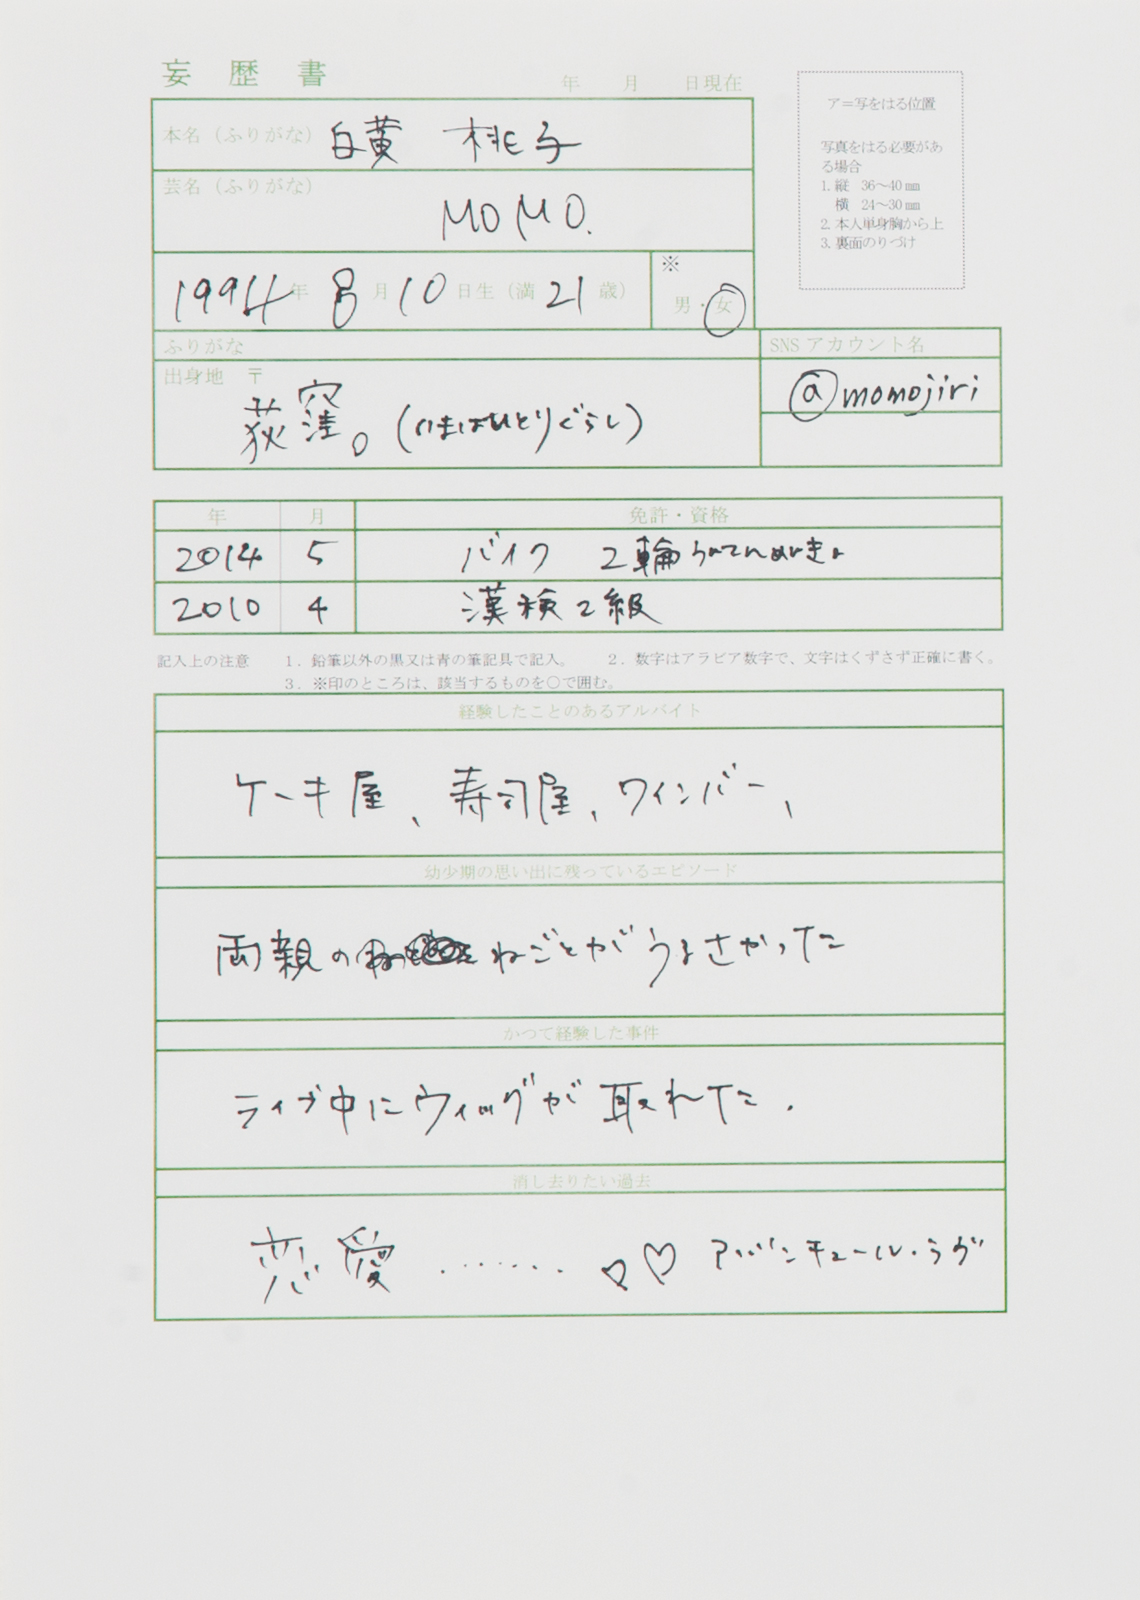 妄歴書
年 月 日現在
ア=写をはる位置
写真をはる必要があ
る場合
1. 縦 36〜40㎜
横 24〜30㎜
2. 本人単身胸から上
3. 裏面のりづけ
本名（ふりがな） 白黄 桃子
芸名（ふりがな）
MOMO.
1994年 8月 10日生（満 21 歳）
※
男・女
ふりがな
SNS アカウント名
出身地 〒
荻窪。(いまはひとりぐらし)
@momojiri
年 月 免許・資格
2014 5 バイク 2輪うんてんめんきょ
2010 4 漢検2級
記入上の注意 1．鉛筆以外の黒又は青の筆記具で記入。 2．数字はアラビア数字で、文字はくずさず正確に書く。
3．※印のところは、該当するものを○で囲む。
経験したことのあるアルバイト
ケーキ屋、寿司屋、ワインバー、
幼少期の思い出に残っているエピソード
両親の ねごとがうるさかった
かつて経験した事件
ライブ中にウィッグが取れた.
消し去りたい過去
恋愛 ........ ♡♡ アバンチュール・ラヴ